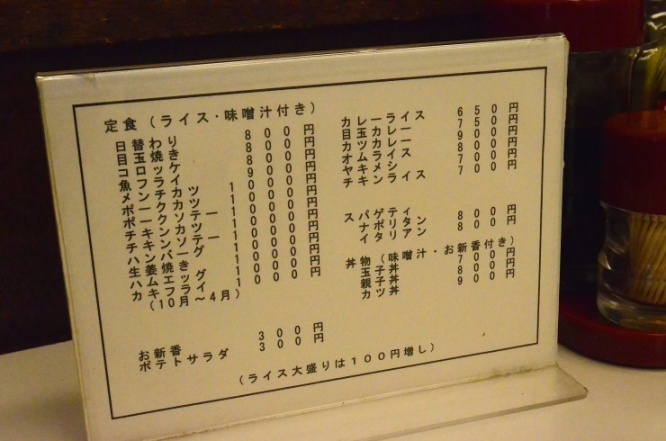 定食(ライス・味噌汁付き)
日替わり 800円
目玉焼き 800円
コロッケ 800円
魚フライ 900円
メンチカツ 1000円
ポークカツ 1000円
ポークソテー 1000円
チキンカツ 1000円
チキンソテー 1000円
ハンバーグ 1000円
生姜焼き 1000円
ハムエッグ 1000円
カキフライ 1000円
(10月～4月)
お新香 300円
ポテトサラダ 300円
カレーライス 650円
目玉カレー 750円
カツカレー 900円
オムライス 800円
ヤキメシ 700円
チキンライス 700円
スパゲティ
ナポリタン 800円
イタリアン 800円
丼物(味噌汁・お新香付き)
玉子丼 700円
親子丼 800円
カツ丼 900円
(ライス大盛りは100円増し)